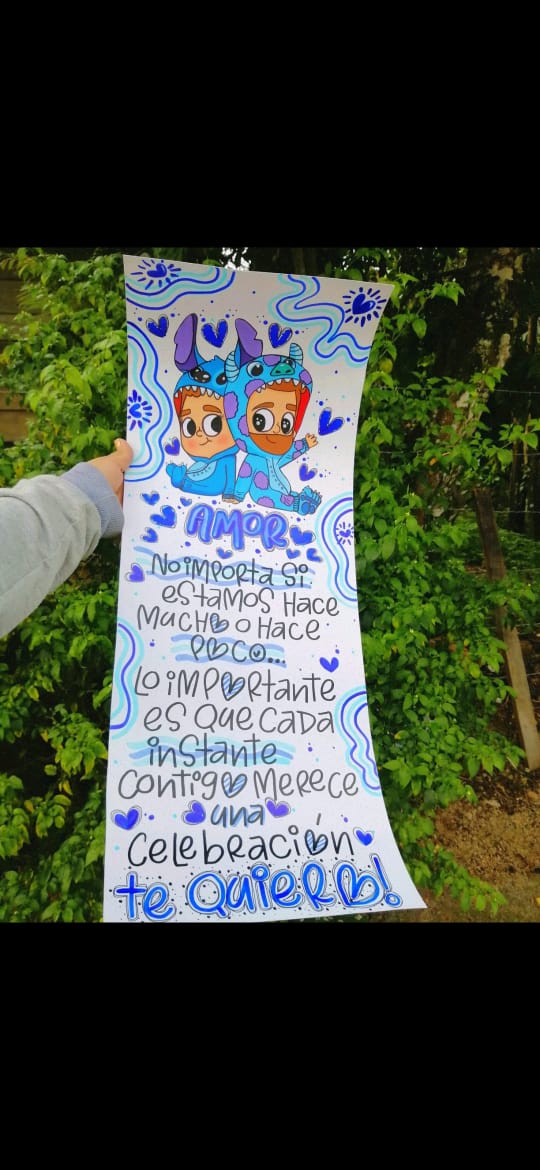 AMOR
No importa si
estamos hace
mucho o hace
poco...
Lo importante
es que cada
instante
contigo merece
una
celebración
te quiero!